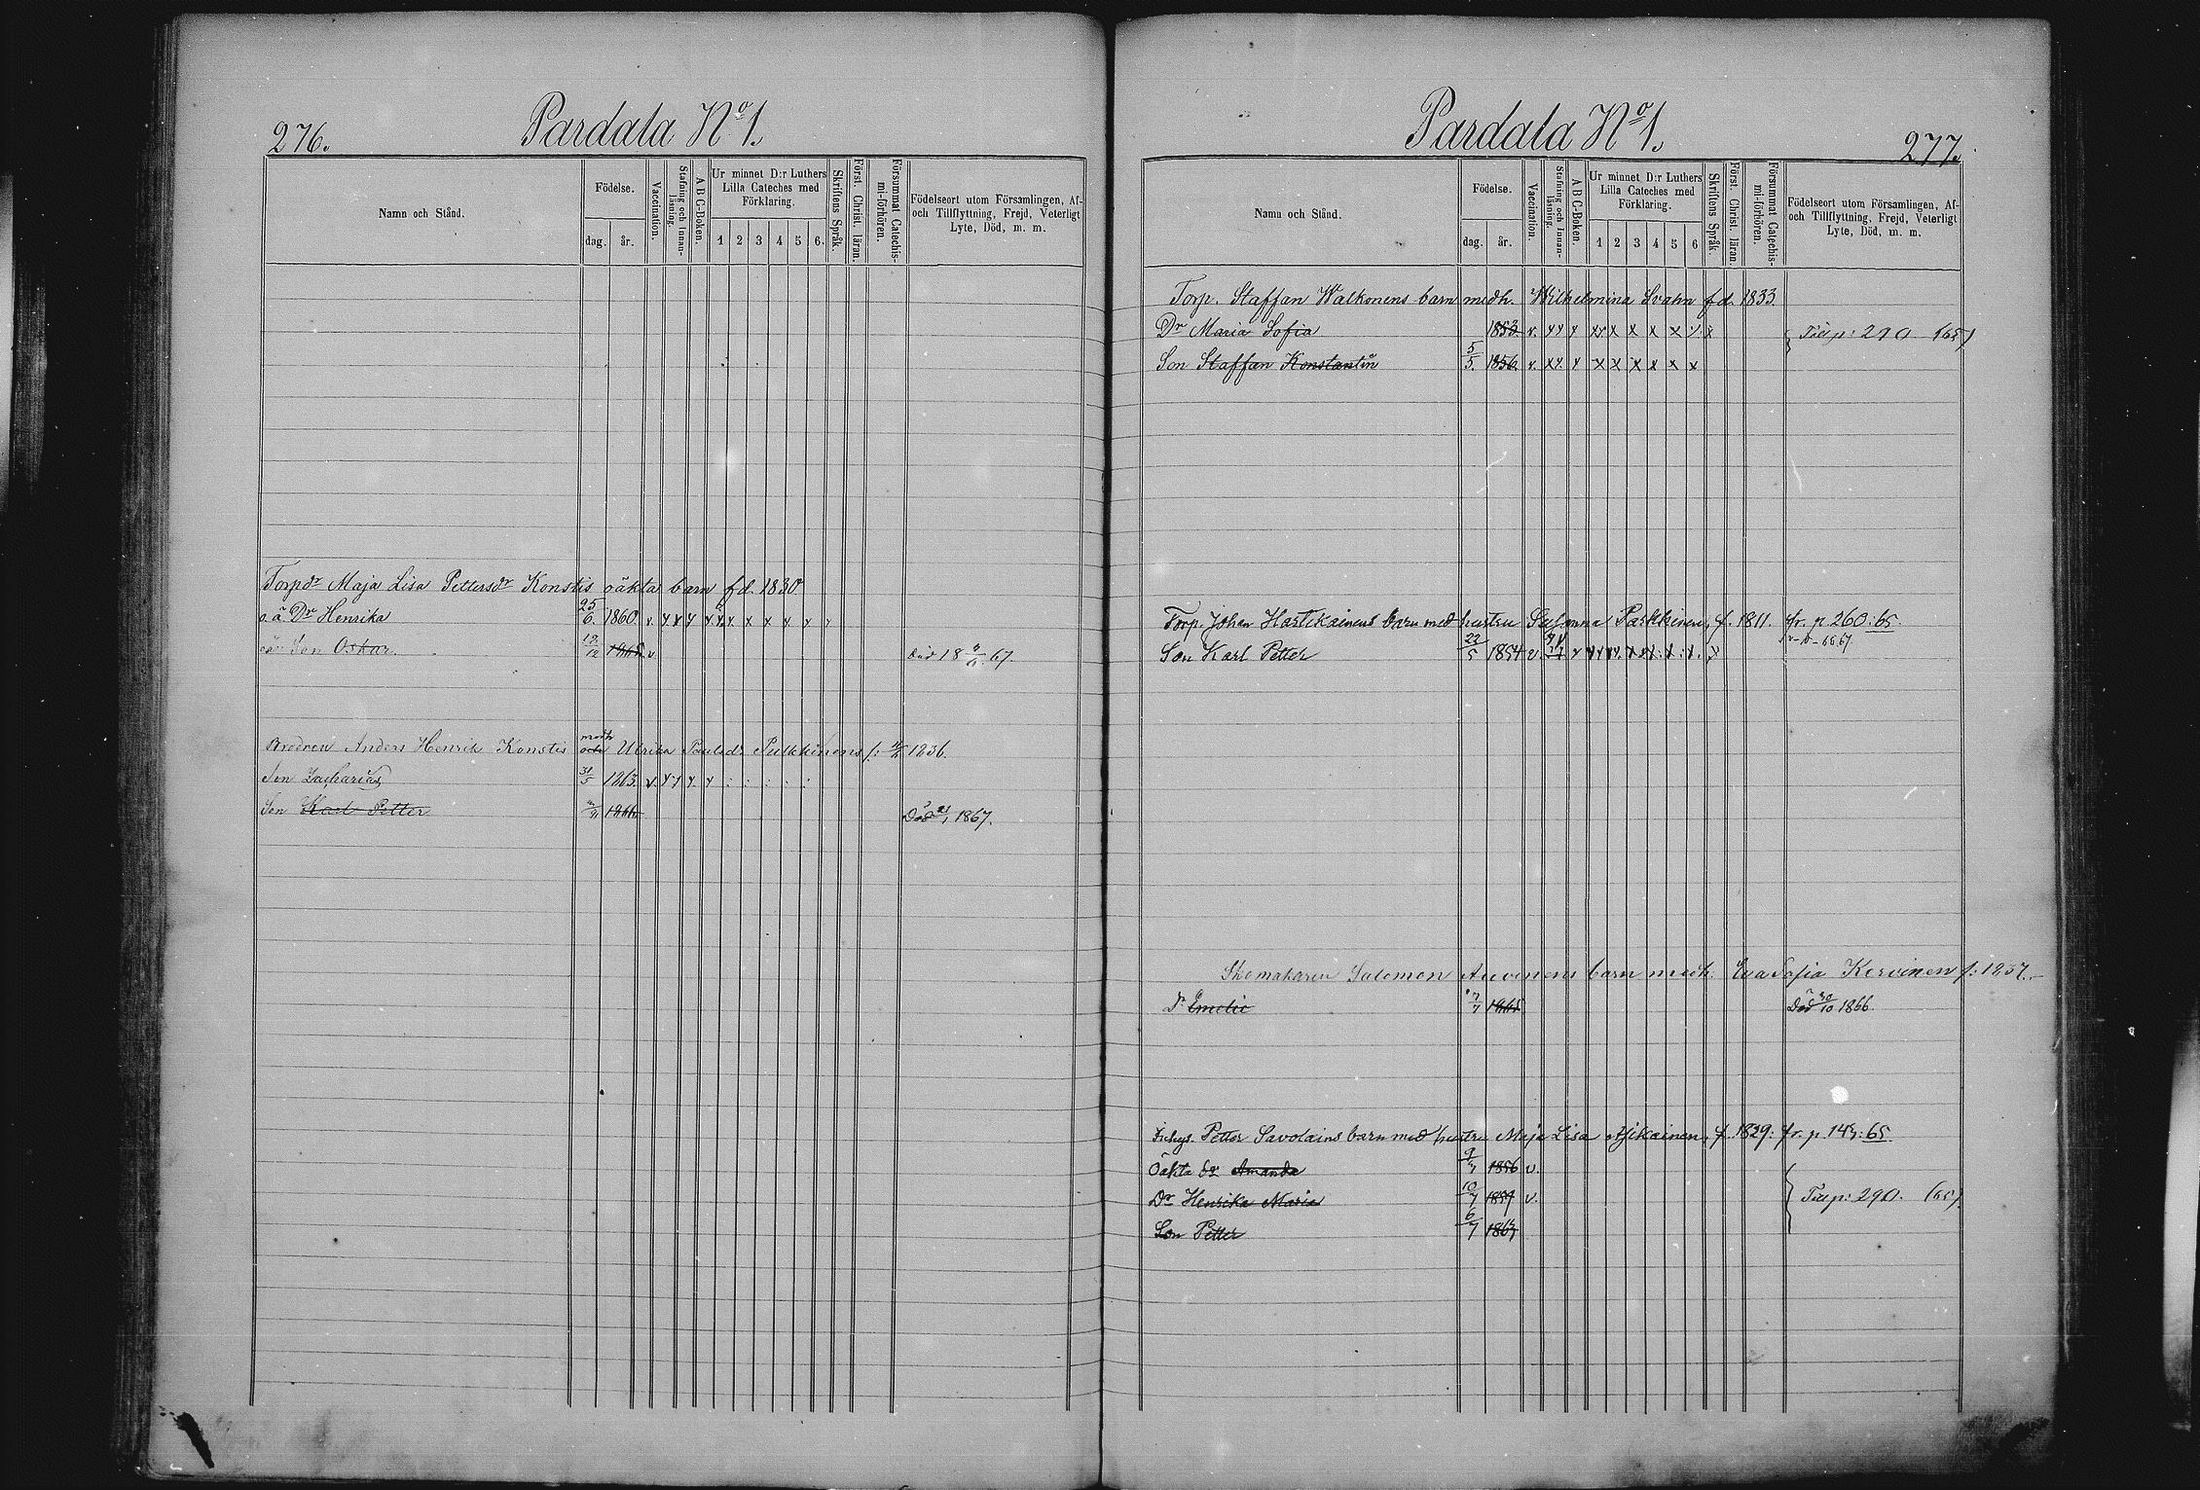 276.
Pardala No 1.
Namn och Stånd.
Födelse.
dag.
år.
Vaccination.
Stafning och Innan-läsning.
A B C-Boken.
Ur minnet D:r Luthers Lilla Cateches med Förklaring.
1 2 3 4 5 6.
Skriftens Språk.
Först. Christ. läran.
Försummat Catechis-mi-förhören.
Födelseort utom Församlingen, Af- och Tillflyttning, Frejd, Veterligt Lyte, Död, m. m.
Torpdr Maja Lisa Pettersdr Konstis oäkta barn fd. 1830.
o.ä Dr Henrika 25/6. 1860. v. x x x x x x x x x x
Son Oskar. 12/12 1865 v. död 18 67.
Brodren Anders Henrik Konstis medh Ulrika Paulsdr Pulkkinens f. 1836.
Son Zacharias 31/5 1863. v. x x x x : : : : :
Son Karl Petter 1866 Död 21/1 1867.
Pardala No 1.
277.
Namn och Stånd.
Födelse.
dag.
år.
Vaccination.
Stafning och Innan-läsning.
A B C-Boken.
Ur minnet D:r Luthers Lilla Cateches med Förklaring.
1 2 3 4 5 6
Skriftens Språk.
Först. Christ. läran.
Försummat Catechis-mi-förhören.
Födelseort utom Församlingen, Af- och Tillflyttning, Frejd, Veterligt Lyte, Död, m. m.
Torp. Staffan Walkonens barn medh. Wilhelmina Svahn fd. 1833.
Dr Maria Sofia 1853. v. xx x xx x x x x x. x Till p: 290 (65)
Son Staffan Konstantin 5/5. 1856. v. xx x x x x x x x
Torp. Johan Hartikainens barn med hustru Susanna Parkkinen, f. 1811. fr. p. 260: 65.
Son Karl Petter 22/5 1854 v
Skomakaren Salomon Auvinens barn medh. Eva Sofia Kervinen f: 1837.
Dr Emelie 7/7 1865 Död 30/10 1866.
Petter Savolains barn med hustru Maja Lisa f. 1829: fr. p. 143: 65.
Oäkta dr Amanda 9/7 1856 v.
Dr Henrika Maria 10/7 1859 v. Till p: 290. (65).
Son Petter 6/7 1863